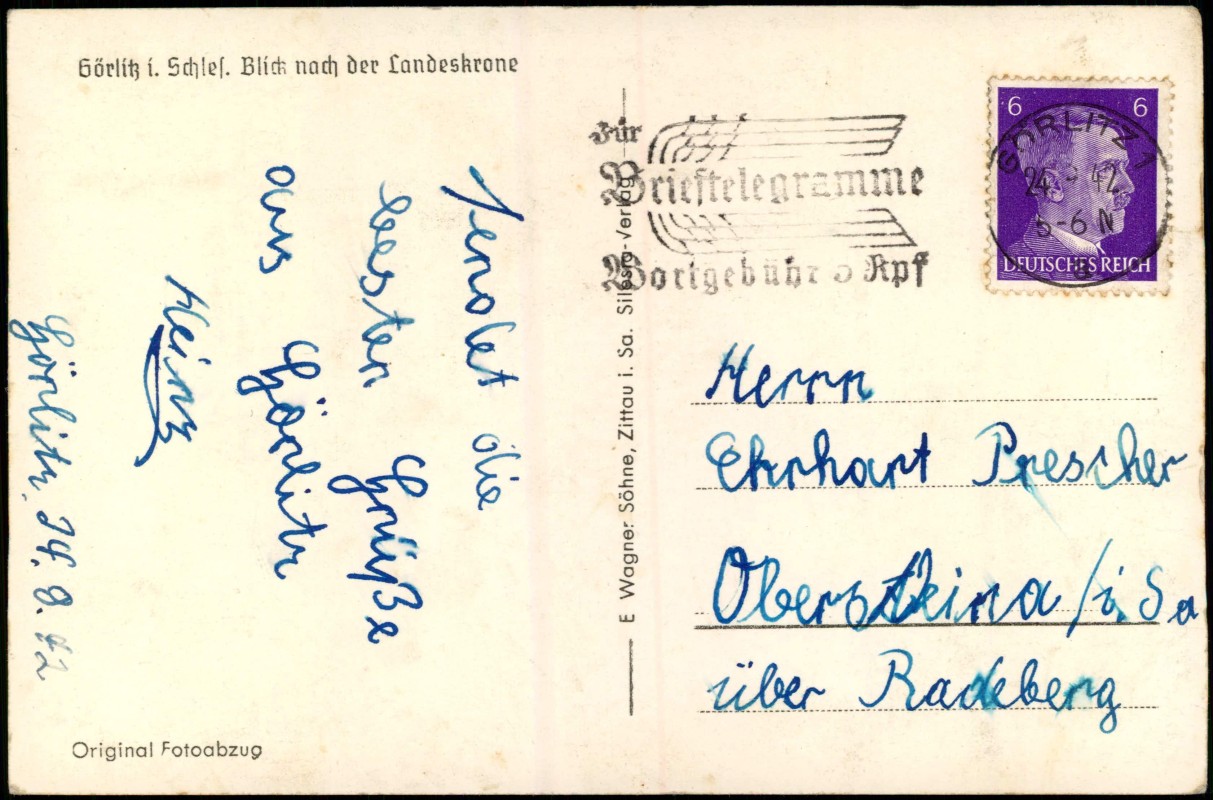 Görlitz i. Schles. Blick nach der Landeskrone
Sendet die
besten Grüße
aus Görlitz
Heinz
Görlitz, 24. 9. 42
Original Fotoabzug
E Wagner Söhne, Zittau i. Sa. Silesia-Verlag
Für
Brieftelegramme
Wortgebühr 5 Rpf
6 6
DEUTSCHES REICH
GÖRLITZ 1
24. 9 42
5-6 N
Herrn
Ehrhart Prescher
Obersteina / i. Sa
über Radeberg